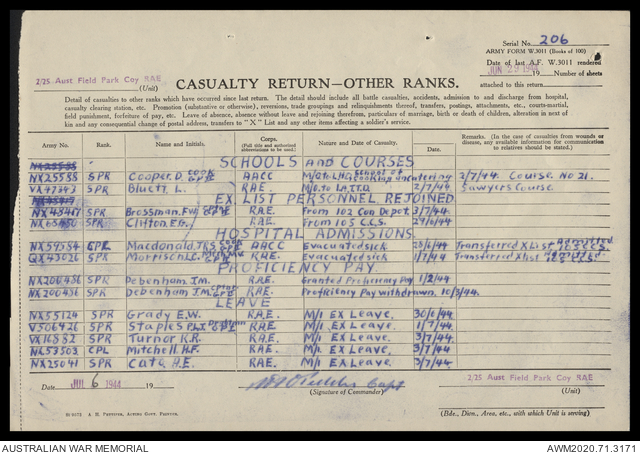 Serial No. 206
ARMY FORM W.3011 (Books of 100)
Date of last A.F. W.3011 rendered
JUN 29 1944 19 Number of sheets
attached to this return
2/25 Aust Field Park Coy RAE
(Unit)
CASUALTY RETURN—OTHER RANKS.
Detail of casualties to other ranks which have occurred since last return. The detail should include all battle casualties, accidents, admission to and discharge from hospital,
casualty clearing station, etc. Promotion (substantive or otherwise), reversions, trade groupings and relinquishments thereof, transfers, postings, attachments, etc., courts-martial,
field punishment, forfeiture of pay, etc. Leave of absence, absence without leave and rejoining therefrom, particulars of marriage, birth or death of children, alteration in next of
kin and any consequential change of postal address, transfers to "X" List and any other items affecting a soldier's service.
Army No. Rank. Name and Initials. Corps. (Full title and authorized abbreviations to be used.) Nature and Date of Casualty. Date. Remarks. (In the case of casualties from wounds or disease, any available information for communication to relatives should be stated.)
SCHOOLS and COURSES
NX25588 SPR Cooper D. AACC M/O to LHQ School of Cooking & Catering 2/7/44. Course No 21.
VX47343 SPR Bluett L. R.A.E. M/O. to L.A.T.T.D 2/7/44 Sawyers Course
EX. LIST PERSONNEL REJOINED
SPR Brossman. F.W. R.A.E. From 102 Con Depot. 3/7/44.
SPR Clifton. E.R. R.A.E. From 105 C.C.S. 29/6/44
HOSPITAL ADMISSIONS
NX57354 CPL Macdonald. J.R.S AACC Evacuated sick 28/6/44 Transferred X list Admitted 105 CCS.
QX43026 SPR Morrison L.C. R.A.E. Evacuated sick 1/7/44 Transferred X list Admitted 105 CCS.
PROFICIENCY PAY
NX200486 SPR Debenham J.M. R.A.E. Granted Proficiency Pay 1/2/44
NX200486 SPR Debenham J.M. R.A.E. Proficiency Pay withdrawn. 10/3/44.
LEAVE
NX55124 SPR Grady E.W. R.A.E. M/I EX Leave. 30/6/44
V506426 SPR Staples P.L.J R.A.E. M/I EX Leave. 1/7/44.
VX16882 SPR Turnor K.R. R.A.E. M/I EX Leave. 3/7/44
NX53503 CPL Mitchell. H.F. R.A.E. M/I EX Leave. 3/7/44.
NX25041 SPR Cato A.E. R.A.E. M/I EX Leave. 3/7/44.
Date JUL 6 1944 19
Capt
(Signature of Commander)
2/25 Aust Field Park Coy RAE
(Unit)
A. H. PETTIFER, ACTING GOVT. PRINTER.
(Bde., Divn., Area, etc., with which Unit is serving)
AUSTRALIAN WAR MEMORIAL
AWM2020.71.3171